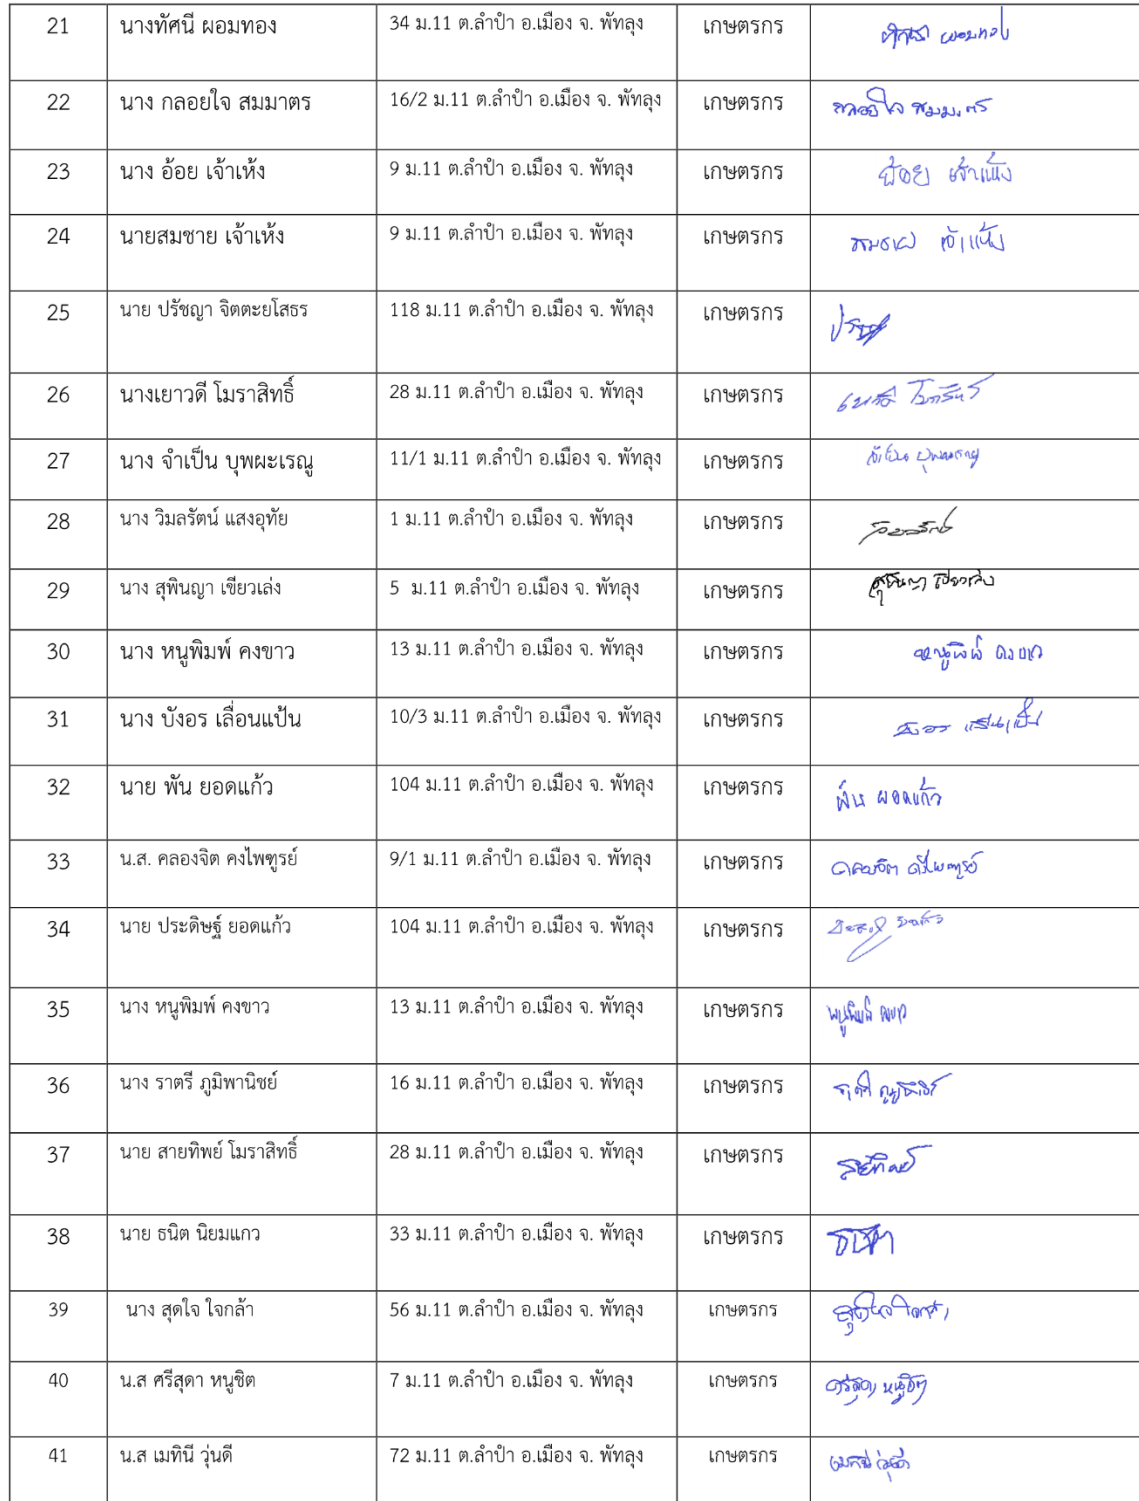 21 นางทัศนี ผอมทอง 34 ม.11 ต.ลำปำ อ.เมือง จ. พัทลุง เกษตรกร
22 นาง กลอยใจ สมมาตร 16/2 ม.11 ต.ลำปำ อ.เมือง จ. พัทลุง เกษตรกร
23 นาง อ้อย เจ้าเห้ง 9 ม.11 ต.ลำปำ อ.เมือง จ. พัทลุง เกษตรกร อ้อย เจ้าเห้ง
24 นายสมชาย เจ้าเห้ง 9 ม.11 ต.ลำปำ อ.เมือง จ. พัทลุง เกษตรกร
25 นาย ปรัชญา จิตตะยโสธร 118 ม.11 ต.ลำปำ อ.เมือง จ. พัทลุง เกษตรกร
26 นางเยาวดี โมราสิทธิ์ 28 ม.11 ต.ลำปำ อ.เมือง จ. พัทลุง เกษตรกร
27 นาง จำเป็น บุพผะเรณู 11/1 ม.11 ต.ลำปำ อ.เมือง จ. พัทลุง เกษตรกร
28 นาง วิมลรัตน์ แสงอุทัย 1 ม.11 ต.ลำปำ อ.เมือง จ. พัทลุง เกษตรกร
29 นาง สุพินญา เขียวเล่ง 5 ม.11 ต.ลำปำ อ.เมือง จ. พัทลุง เกษตรกร
30 นาง หนูพิมพ์ คงขาว 13 ม.11 ต.ลำปำ อ.เมือง จ. พัทลุง เกษตรกร
31 นาง บังอร เลื่อนแป้น 10/3 ม.11 ต.ลำปำ อ.เมือง จ. พัทลุง เกษตรกร
32 นาย พัน ยอดแก้ว 104 ม.11 ต.ลำปำ อ.เมือง จ. พัทลุง เกษตรกร พัน ยอดแก้ว
33 น.ส. คลองจิต คงไพฑูรย์ 9/1 ม.11 ต.ลำปำ อ.เมือง จ. พัทลุง เกษตรกร
34 นาย ประดิษฐ์ ยอดแก้ว 104 ม.11 ต.ลำปำ อ.เมือง จ. พัทลุง เกษตรกร
35 นาง หนูพิมพ์ คงขาว 13 ม.11 ต.ลำปำ อ.เมือง จ. พัทลุง เกษตรกร
36 นาง ราตรี ภูมิพานิชย์ 16 ม.11 ต.ลำปำ อ.เมือง จ. พัทลุง เกษตรกร
37 นาย สายทิพย์ โมราสิทธิ์ 28 ม.11 ต.ลำปำ อ.เมือง จ. พัทลุง เกษตรกร
38 นาย ธนิต นิยมแกว 33 ม.11 ต.ลำปำ อ.เมือง จ. พัทลุง เกษตรกร
39 นาง สุดใจ ใจกล้า 56 ม.11 ต.ลำปำ อ.เมือง จ. พัทลุง เกษตรกร
40 น.ส ศรีสุดา หนูชิต 7 ม.11 ต.ลำปำ อ.เมือง จ. พัทลุง เกษตรกร
41 น.ส เมทินี วุ่นดี 72 ม.11 ต.ลำปำ อ.เมือง จ. พัทลุง เกษตรกร